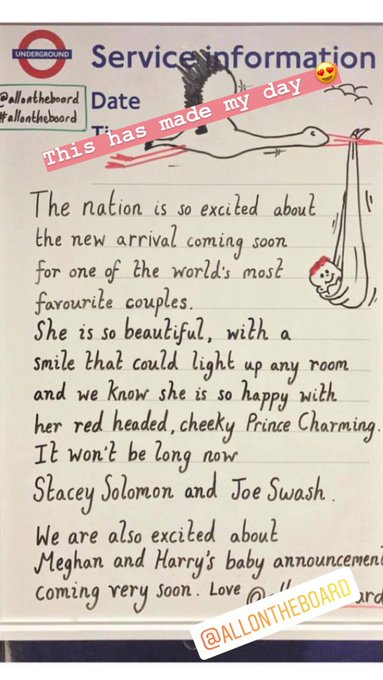 UNDERGROUND
Service information
@allontheboard
#allontheboard
Date
This has made my day
The nation is so excited about
the new arrival coming soon
for one of the world's most
favourite couples.
She is so beautiful, with a
smile that could light up any room
and we know she is so happy with
her red headed, cheeky Prince Charming.
It won't be long now
Stacey Solomon and Joe Swash.
We are also excited about
Meghan and Harry's baby announcement
coming very soon. Love
@ALLONTHEBOARD